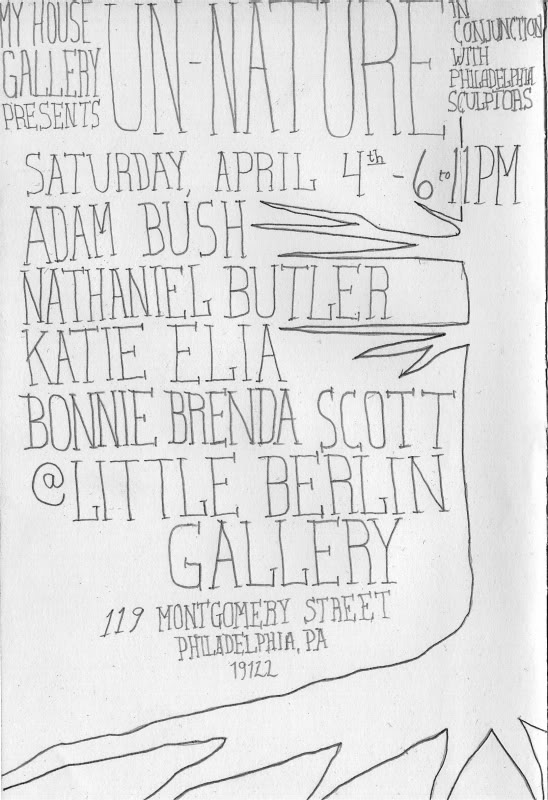 MY HOUSE
GALLERY
PRESENTS
UN-NATURE
IN
CONJUNCTION
WITH
PHILADELPHIA
SCULPTORS
SATURDAY, APRIL 4th - 6 to 11PM
ADAM BUSH
NATHANIEL BUTLER
KATIE ELIA
BONNIE BRENDA SCOTT
@ LITTLE BERLIN
GALLERY
119 MONTGOMERY STREET
PHILADELPHIA, PA
19122